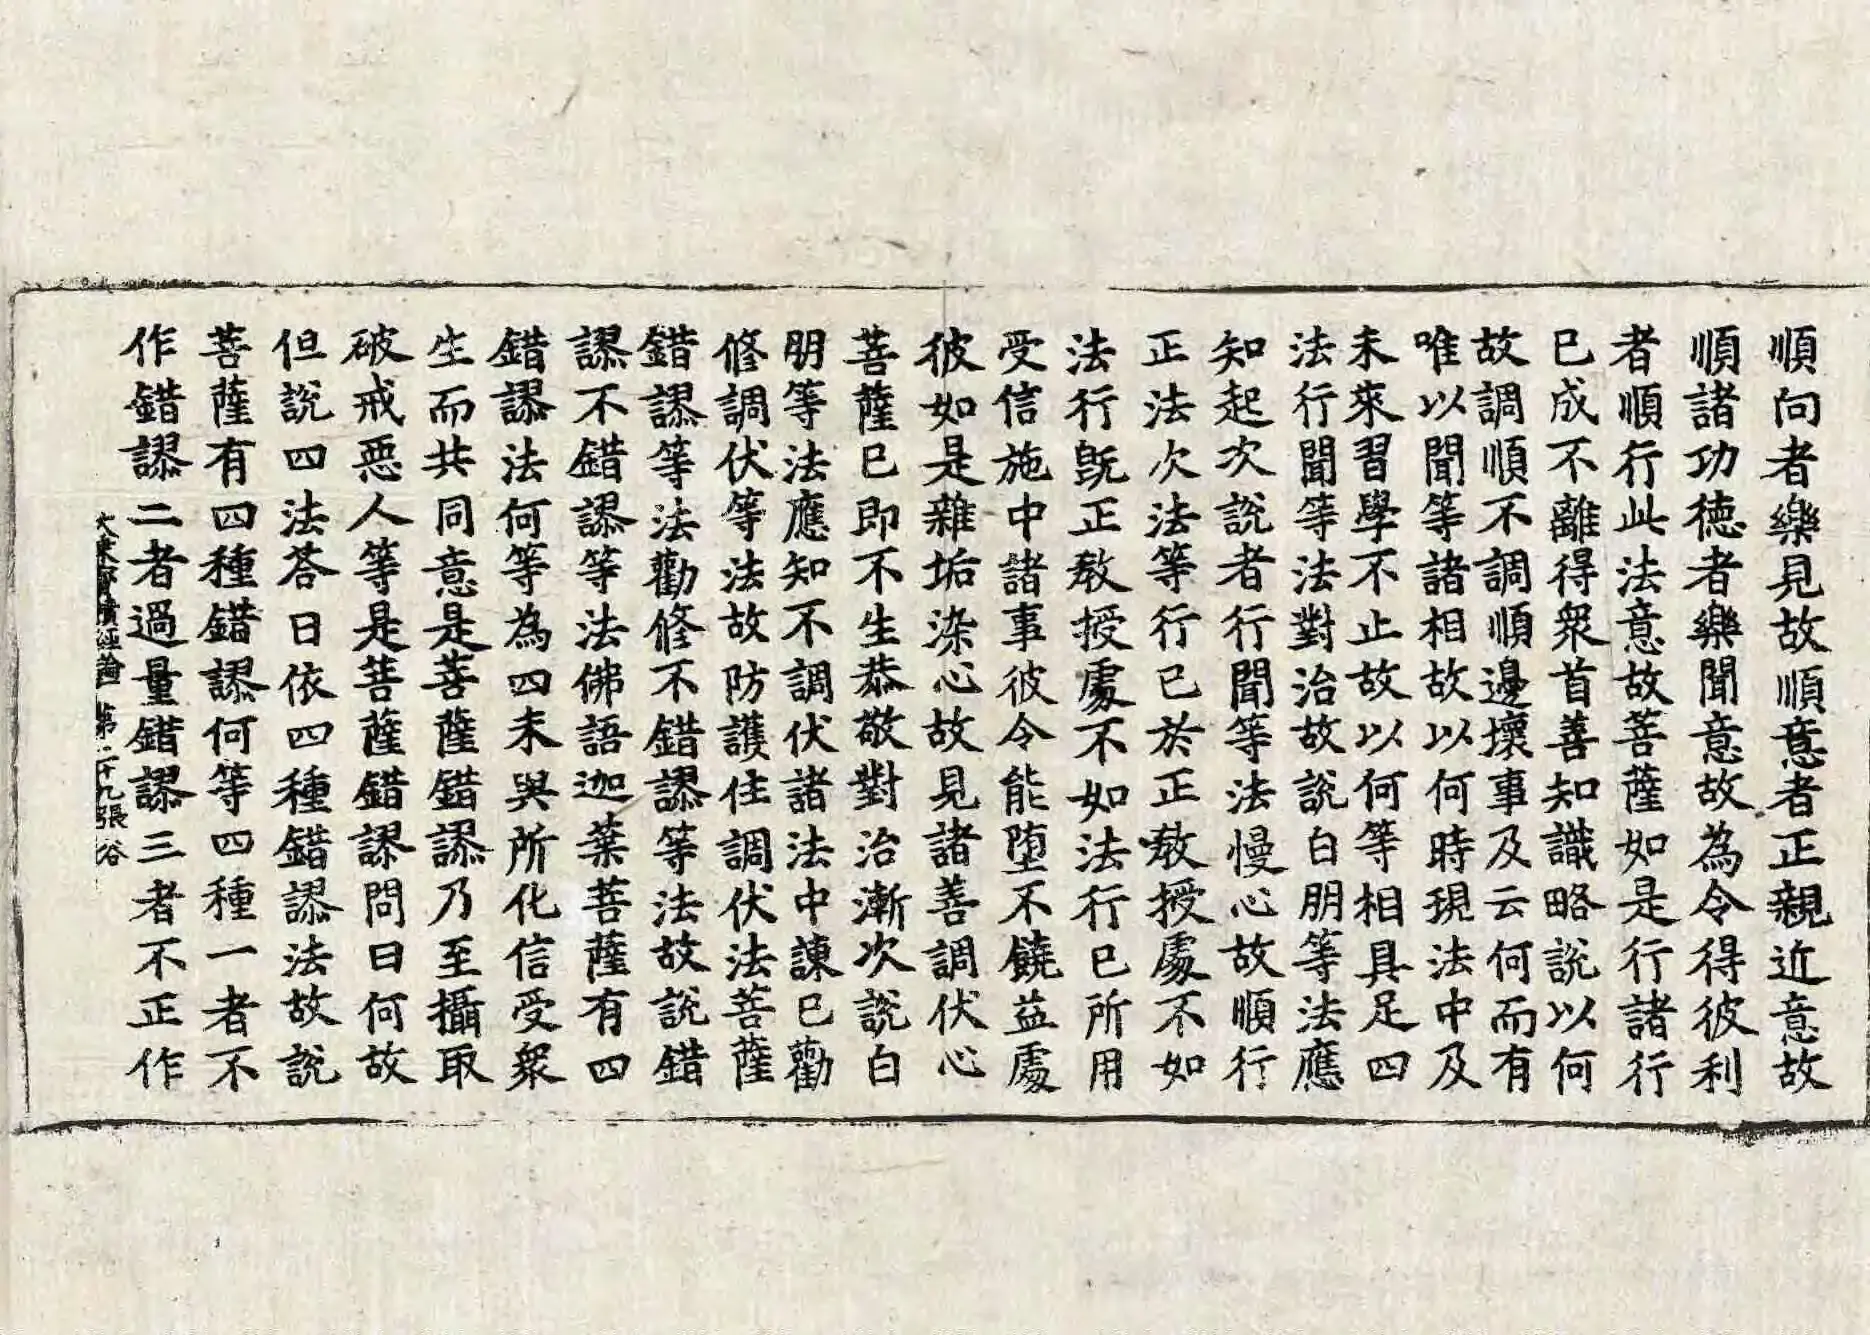 順向者樂見故順意者正親近意故
順諸功德者樂聞意故為令得彼利
者順行此法意故菩薩如是行諸行
已成不離得衆首善知識略說以何
故調順不調順邊壞事及云何而有
唯以聞等諸相故以何時現法中及
未來習學不止故以何等相具足四
法行聞等法對治故說白朋等法應
知起次說者行聞等法慢心故順行
正法次法等行已於正教授處不如
法行旣正教授處不如法行已所用
受信施中諸事彼令能墮不饒益處
彼如是雜垢染心故見諸善調伏心
菩薩已即不生恭敬對治漸次說白
朋等法應知不調伏諸法中諫已勸
修調伏等法故防護住調伏法菩薩
錯謬等法勸修不錯謬等法故說錯
謬不錯謬等法佛語迦葉菩薩有四
錯謬法何等為四未與所化信受衆
生而共同意是菩薩錯謬乃至攝取
破戒惡人等是菩薩錯謬問曰何故
但說四法荅曰依四種錯謬法故說
菩薩有四種錯謬何等四種一者不
作錯謬二者過量錯謬三者不正作
大乘寶積經論 第二十九張 谷